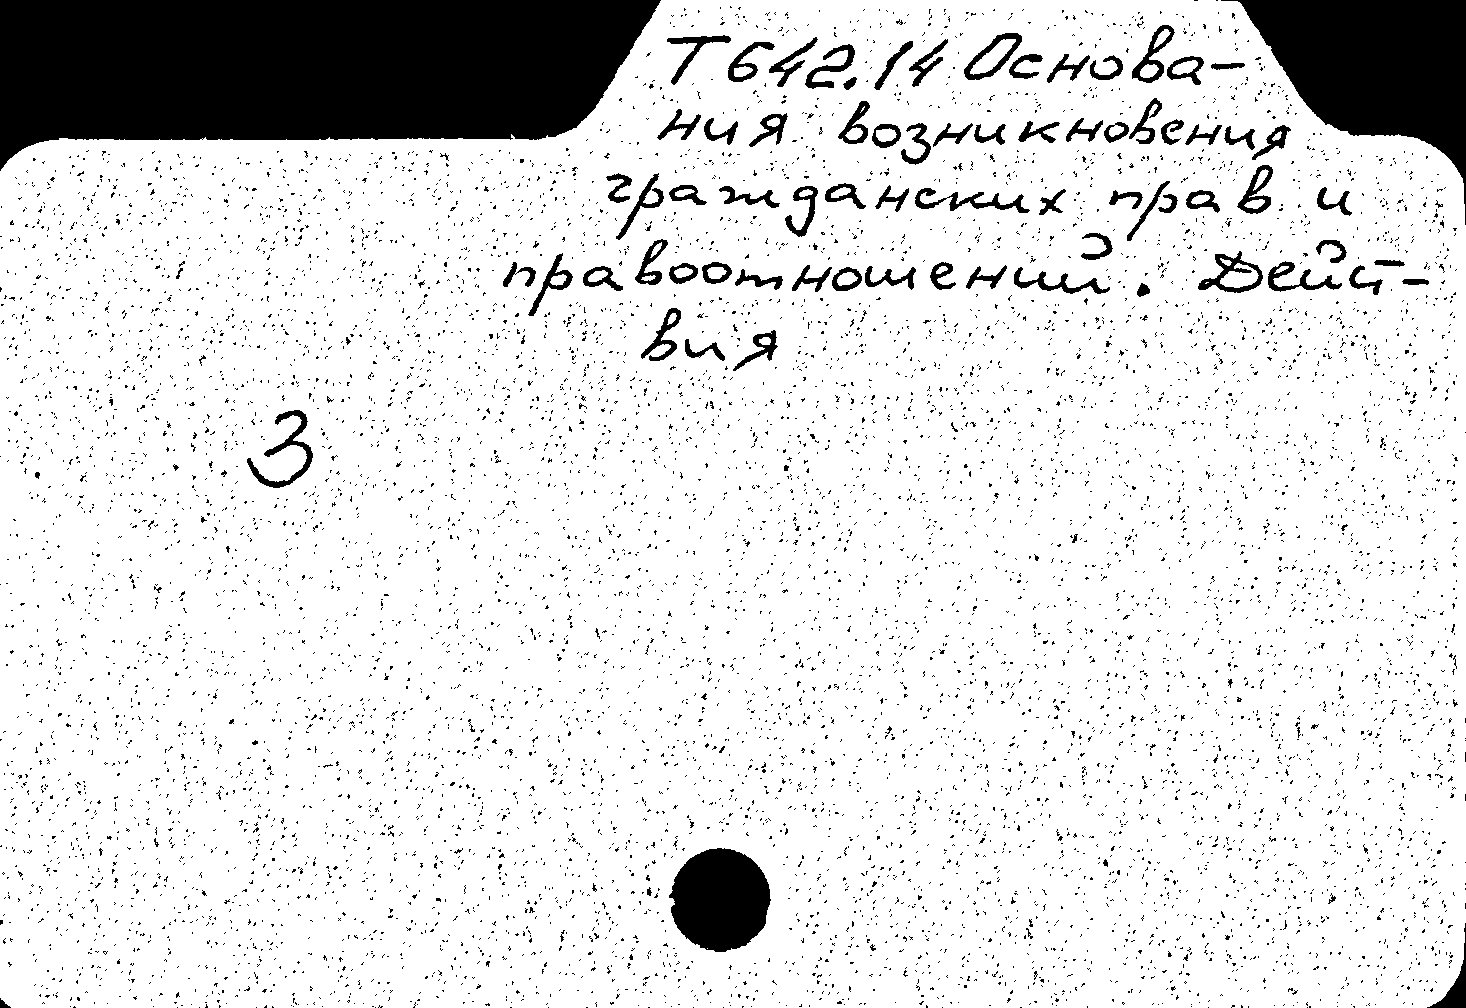 Т642.14 Основа-
ния возникновения
гражданских прав и
правоотношений. Дейст-
вия
3